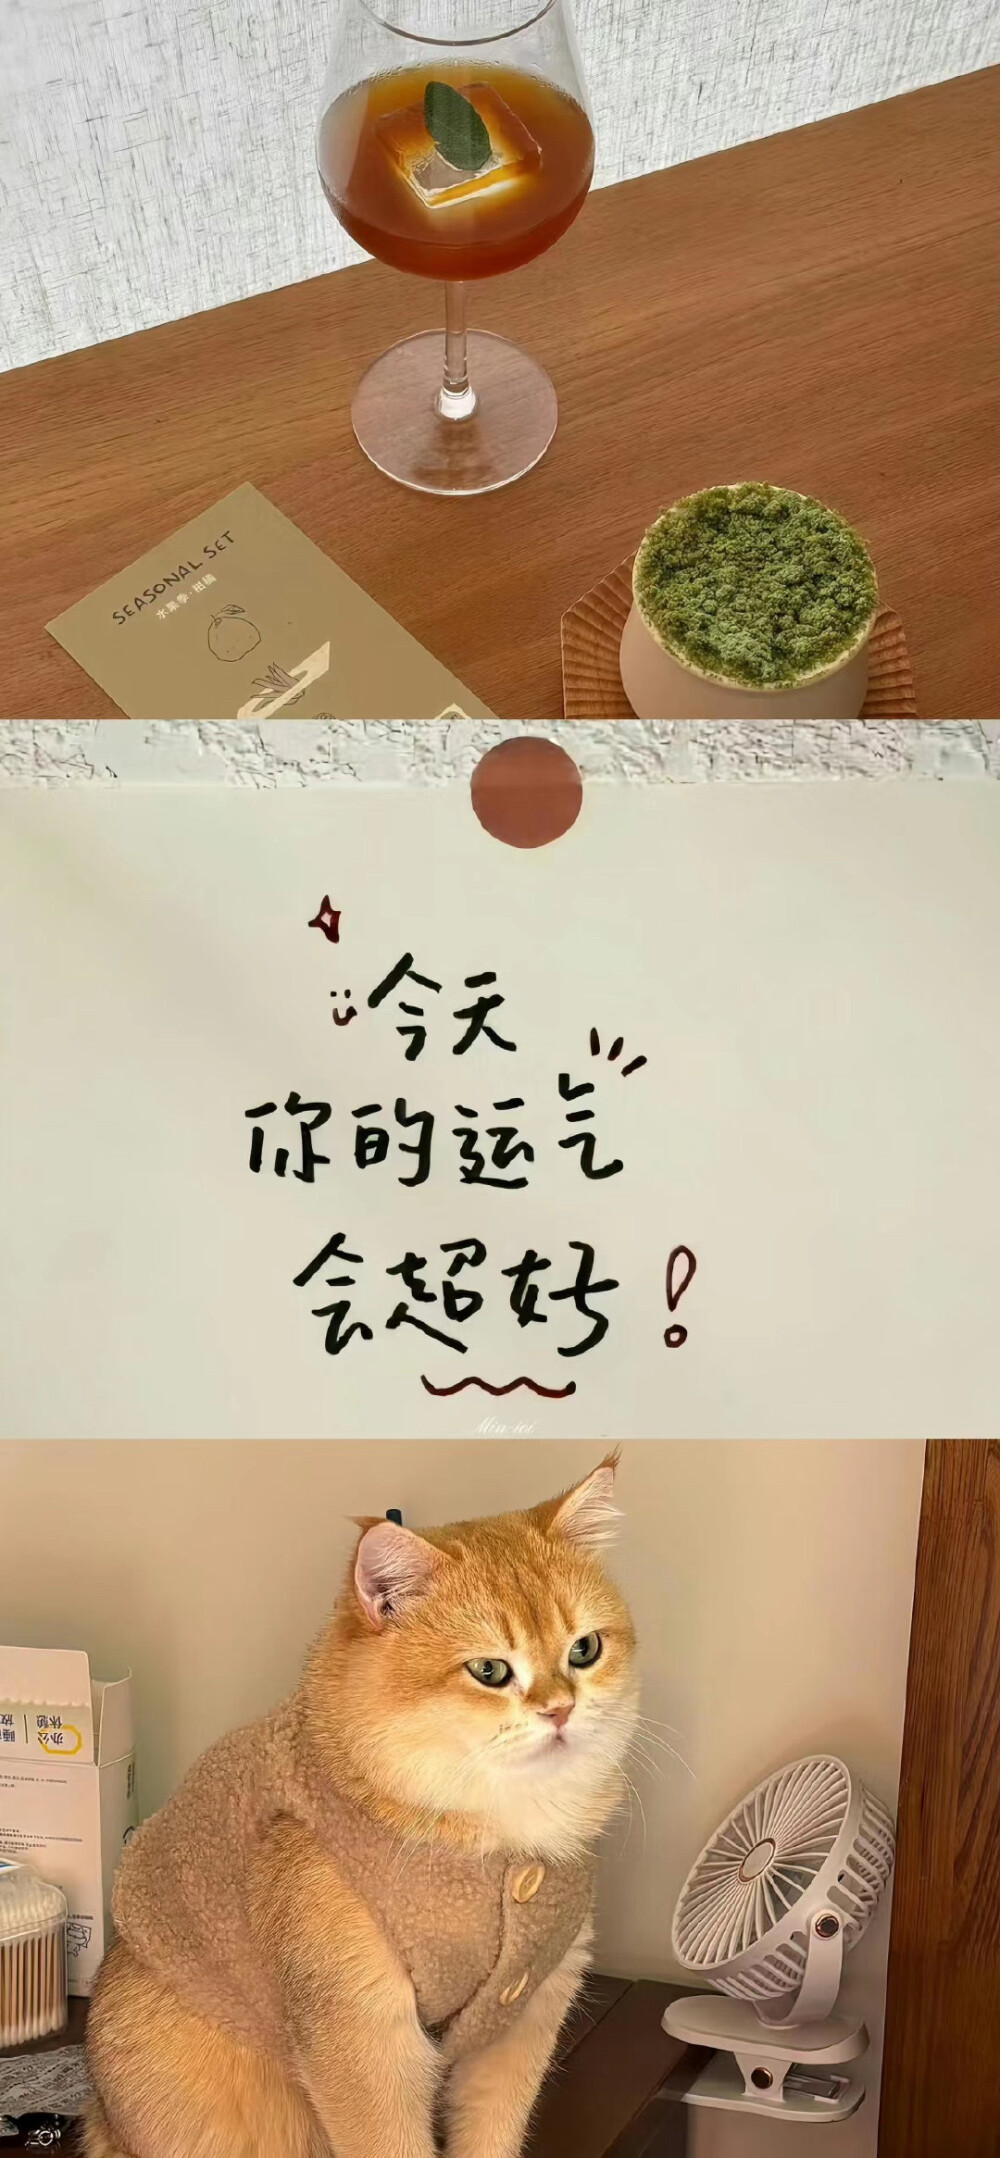 SEASONAL SET
水果季·柑橘
今天
你的运气
会超好!
办公
休憩